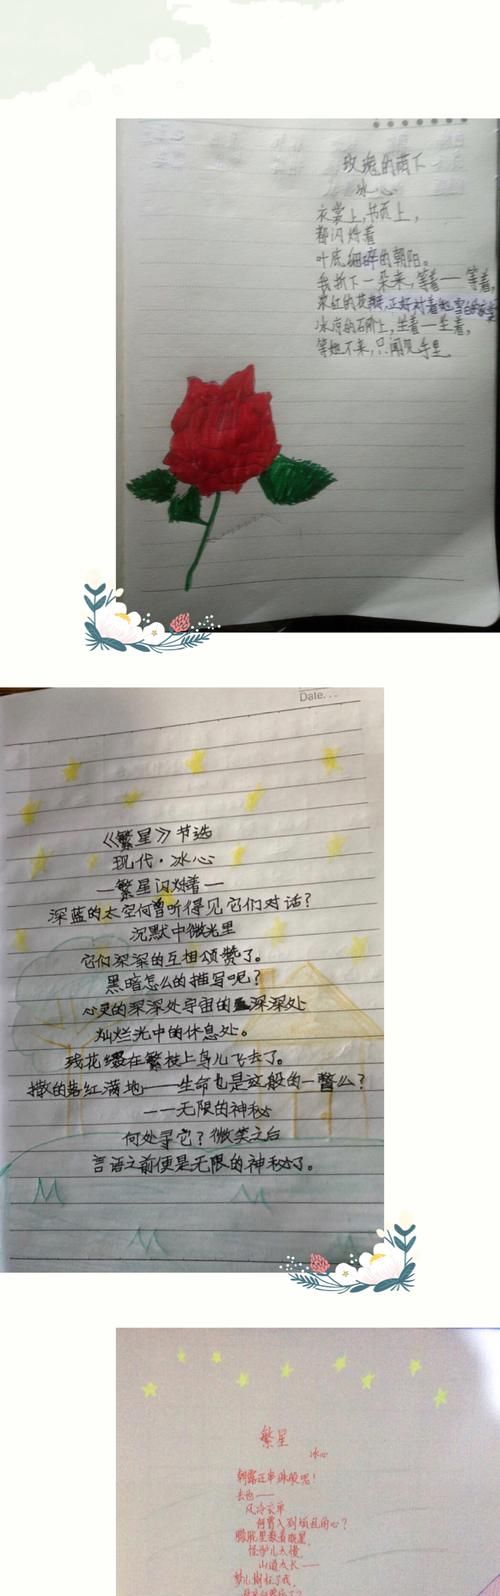 玫瑰的荫下
冰心
衣裳上，书页上，
都闪烁着
叶底细碎的朝阳。
我折下一朵来，等着——等着，
浓红的花瓣，正好衬着她雪白的衣裳
冰凉的石阶上，坐着—坐着，
等她不来，只闻见手里
Date...
《繁星》节选
现代·冰心
—繁星闪烁着—
深蓝的太空何曾听得见它们对话？
沉默中微光里
它们深深的互相颂赞了。
黑暗怎么的描写呢？
心灵的深深处宇宙的深深处
灿烂光中的休息处。
残花缀在繁枝上鸟儿飞去了。
撒的落红满地——生命也是这般的一瞥么？
——无限的神秘
何处寻它？微笑之后
言语之前便是无限的神秘了。
繁星
冰心
朝露还串珠般呢！
去也——
风冷衣单
何曾入到烦乱的心？
朦胧里数着晓星，
怪驴儿太慢，
山道太长——
梦儿欺枉了我，